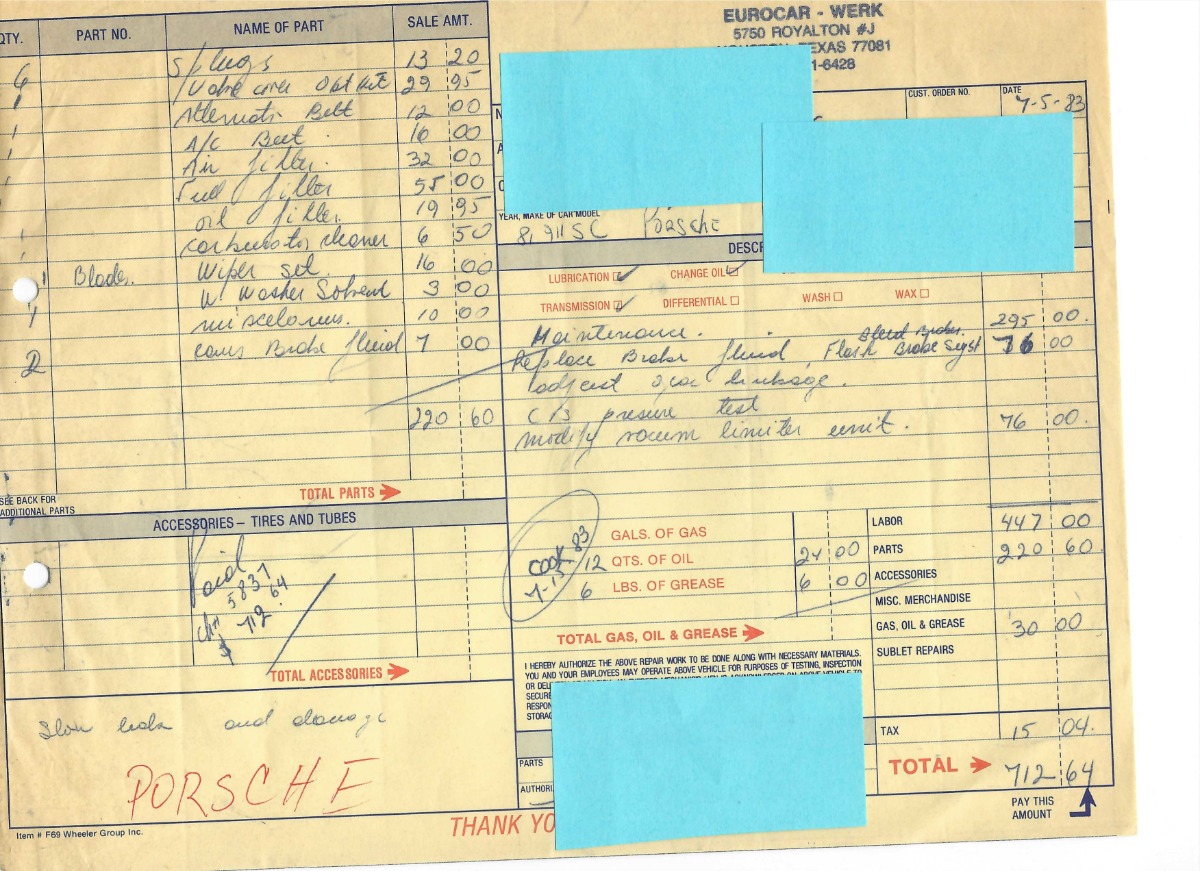 EUROCAR - WERK
5750 ROYALTON #J
TEXAS 77081
1-6428
QTY. PART NO. NAME OF PART SALE AMT.
6 S/Plugs 13 20
1 29 95
1 Alternator Belt 12 00
1 A/C Beet 16 00
1 Air filter. 32 00
1 Fuel filter 55 00
oil filter. 19 95
1 carburator cleaner 6 50
1 Blades. Wiper set. 16 00
W. Washer Solvent 3 00
1 10 00
2 Brake fluid 7 00
220 60
SEE BACK FOR
ADDITIONAL PARTS
TOTAL PARTS
ACCESSORIES – TIRES AND TUBES
Paid
5837
712.64
$
TOTAL ACCESSORIES
and
PORSCHE
Item # F69 Wheeler Group Inc.
CUST. ORDER NO.
DATE
7-5-83
YEAR, MAKE OF CAR MODEL
81 911 SC PORSCHE
DESC
LUBRICATION ☑ CHANGE OIL ☑
TRANSMISSION ☑ DIFFERENTIAL ☐ WASH ☐ WAX ☐
Maintenance. 295 00.
Bleed Brakes.
Replace Brake fluid, Flash Brake Syst 76 00
adjust gear linkage.
presure test
modify vacum limiter unit. 76 00.
83
7-13
GALS. OF GAS
12 QTS. OF OIL 24 00
6 LBS. OF GREASE 6 00
TOTAL GAS, OIL & GREASE
LABOR 447 00
PARTS 220 60
ACCESSORIES
MISC. MERCHANDISE
GAS, OIL & GREASE 30 00
SUBLET REPAIRS
TAX 15 04.
TOTAL 712 64
PAY THIS
AMOUNT
I HEREBY AUTHORIZE THE ABOVE REPAIR WORK TO BE DONE ALONG WITH NECESSARY MATERIALS.
YOU AND YOUR EMPLOYEES MAY OPERATE ABOVE VEHICLE FOR PURPOSES OF TESTING, INSPECTION
OR DEL
SECURE
RESPON
STORAG
PARTS
AUTHORI
THANK YO